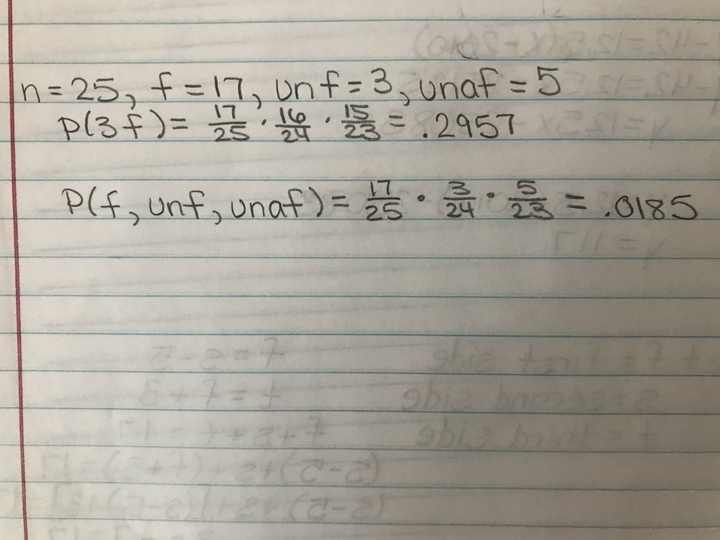 n = 25, f = 17, unf = 3, unaf = 5
P(3f) = 17/25 · 16/24 · 15/23 = .2957
P(f, unf, unaf) = 17/25 · 3/24 · 5/23 = .0185